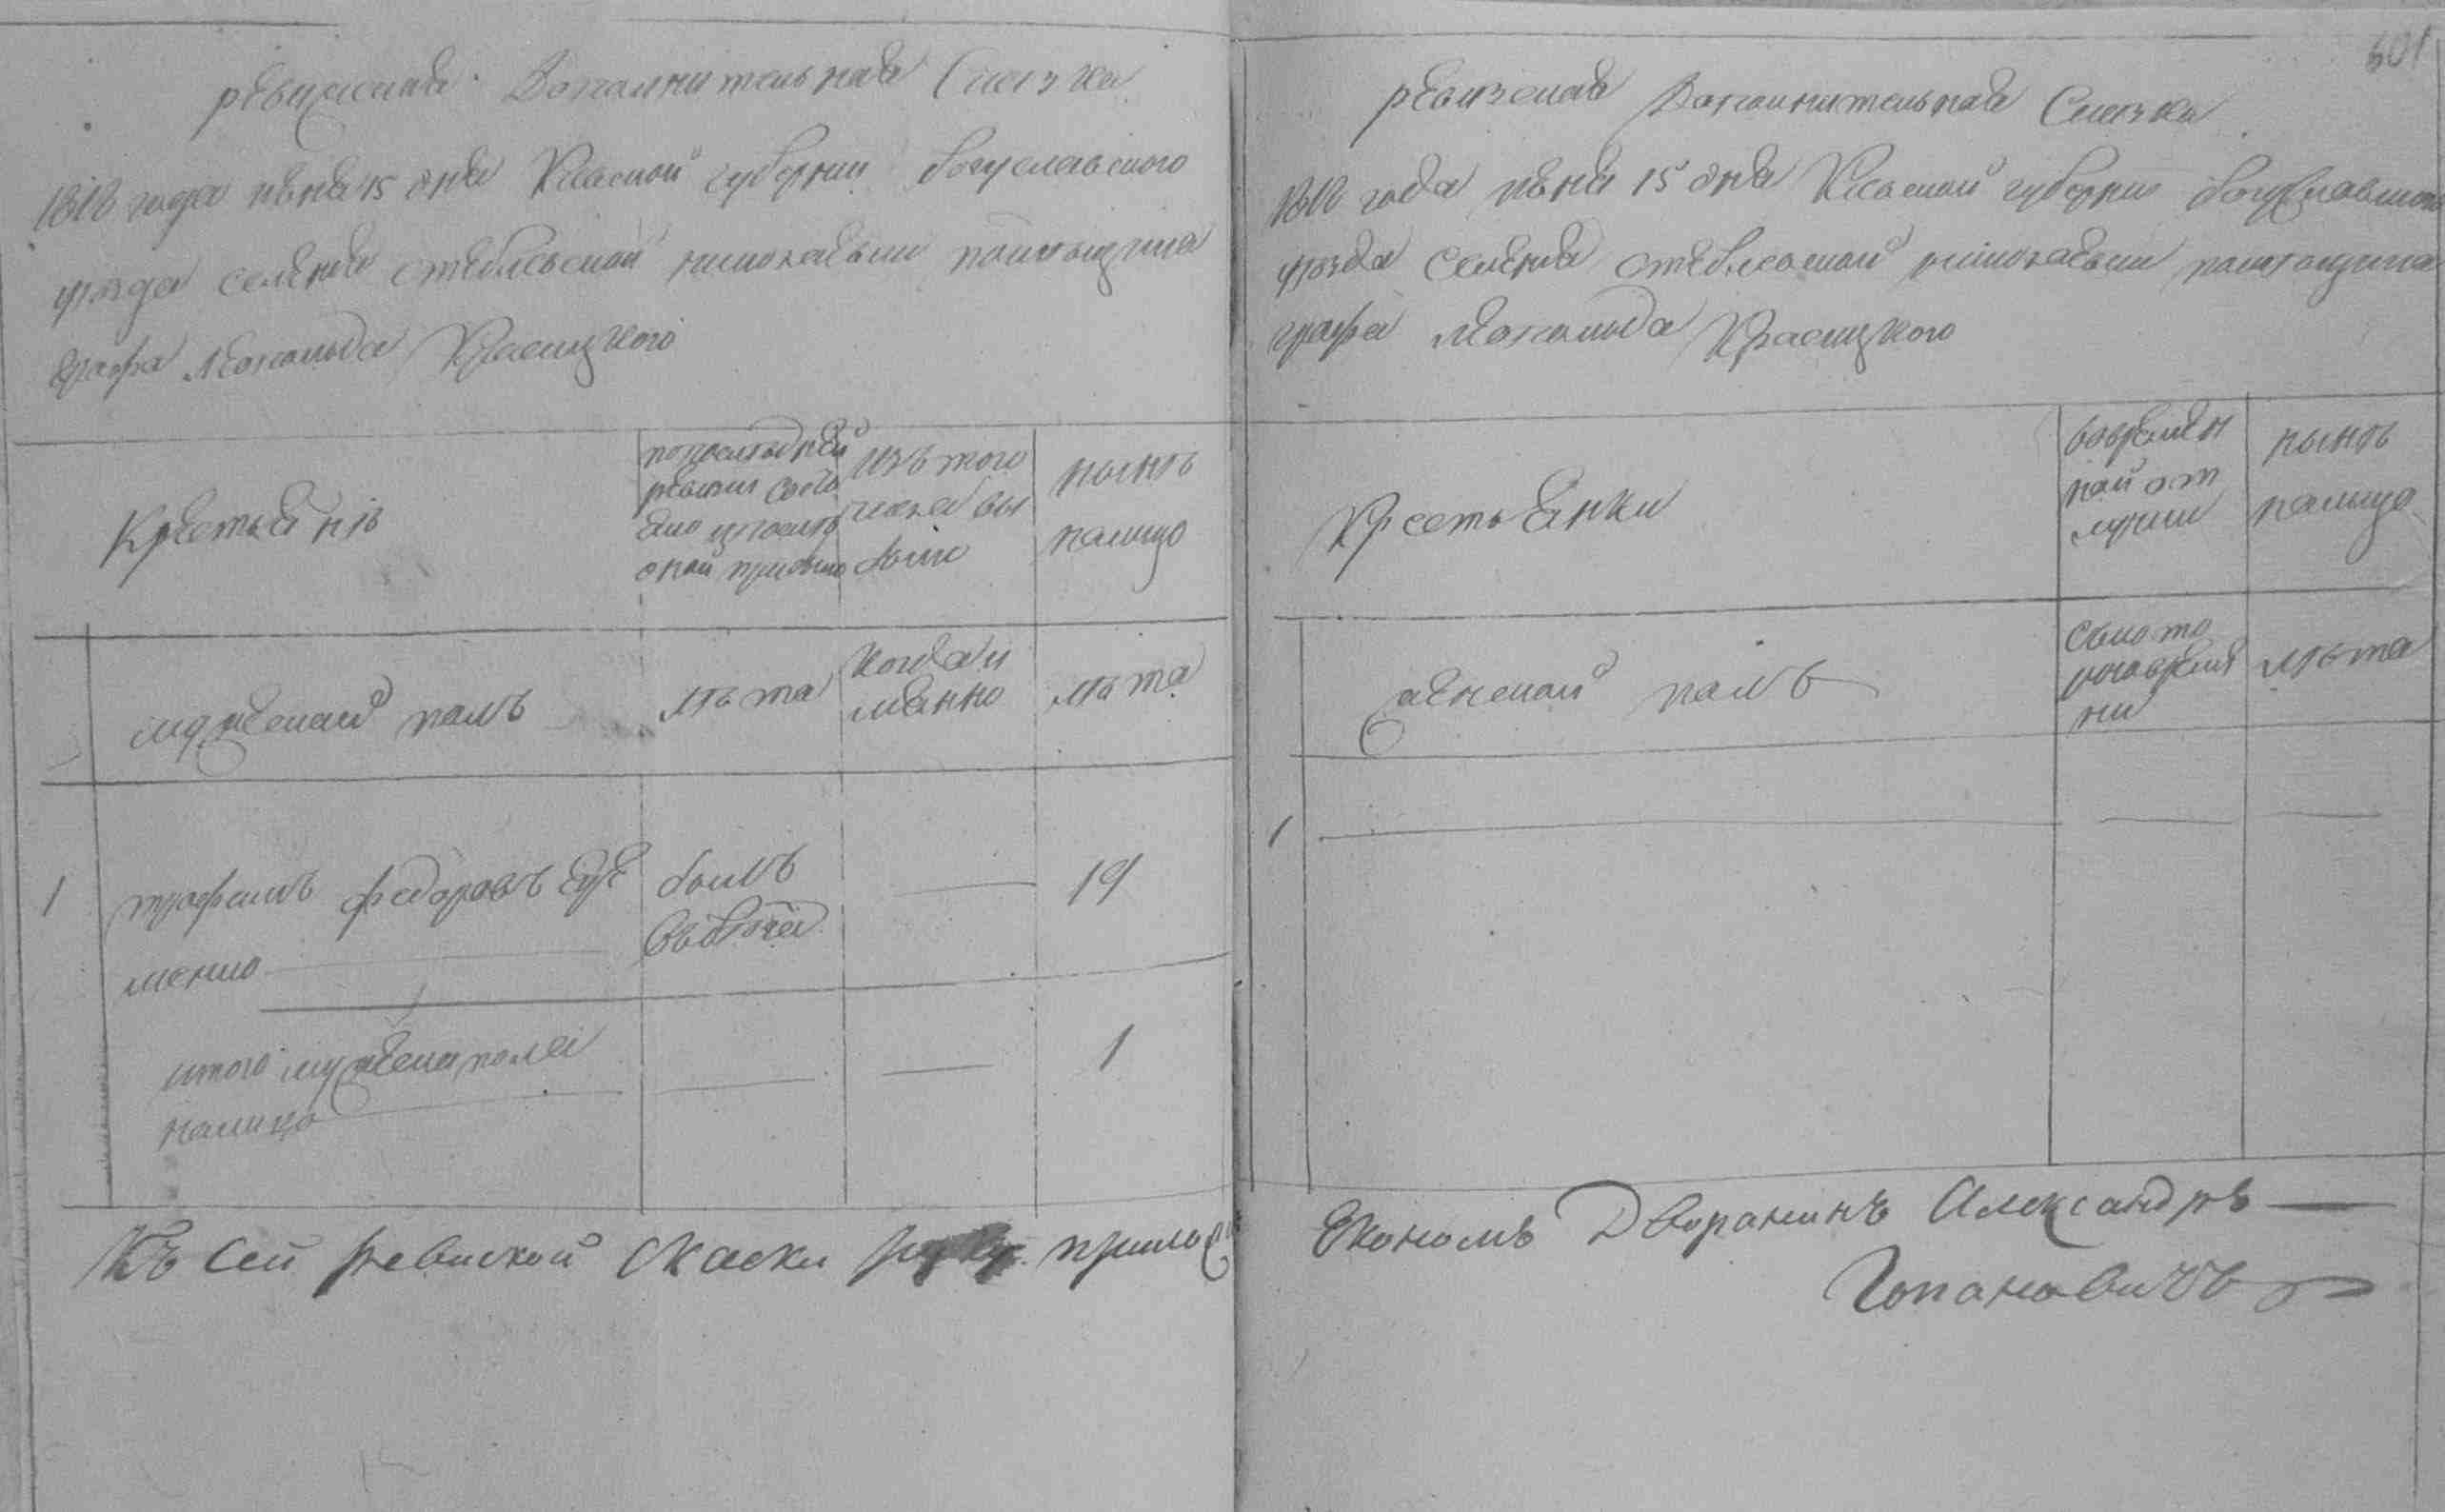 ревизская дополнительная Скаска
1818 года июня 15 дня Киевской губернии богуславского
уезда селения стеблевской николаевки помещика
графа Леопольда Красицкого
Крестьяне
по последней
ревизии состо
яло и после
оной прибыло
изъ того
числа вы
было
ныне
налицо
мужеской полъ
лѣта
когда и
менно
лѣта
1
трофимъ федоровъ Яре
менко
былъ
въ бѣгах
19
итого мужеска пола
налицо
1
Къ сей ревиской скаски прилож
601
ревизская дополнительная Скаска
1818 года июня 15 дня Киевской губернии богуславского
уезда селения стеблевской николаевки помещика
графа Леопольда Красицкого
Крестьянки
вовремен
ной от
лучки
нынѣ
налицо
женской полъ
съ кото
рого време
ни
лѣта
1
Економъ Дворанинъ Александръ